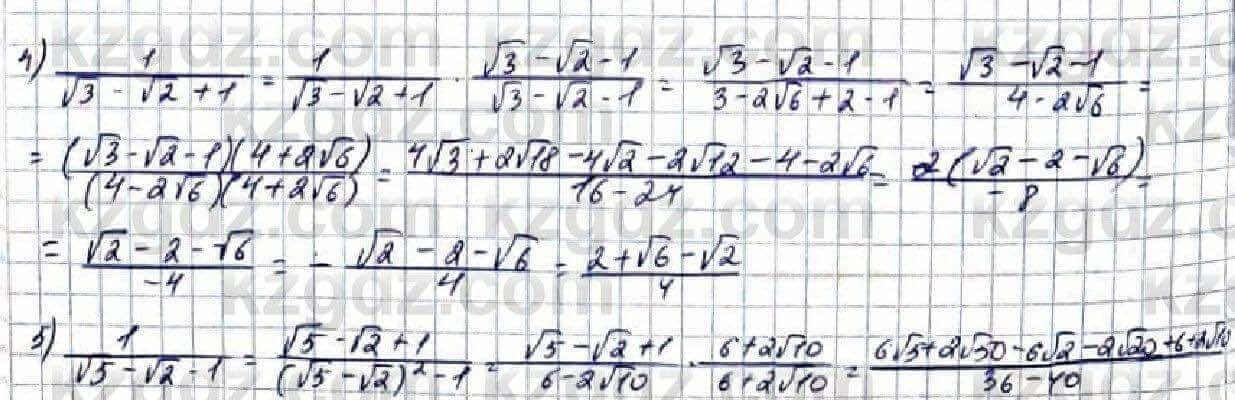 4) 1/(√3 - √2 + 1) = 1/(√3 - √2 + 1) · (√3 - √2 - 1)/(√3 - √2 - 1) = (√3 - √2 - 1)/(3 - 2√6 + 2 - 1) = (√3 - √2 - 1)/(4 - 2√6) =
= (√3 - √2 - 1)(4 + 2√6)/(4 - 2√6)(4 + 2√6) = (4√3 + 2√18 - 4√2 - 2√12 - 4 - 2√6)/(16 - 24) = 2(√2 - 2 - √6)/(-8) =
= (√2 - 2 - √6)/(-4) = - (√2 - 2 - √6)/4 = (2 + √6 - √2)/4
5) 1/(√5 - √2 - 1) = (√5 - √2 + 1)/((√5 - √2)² - 1) = (√5 - √2 + 1)/(6 - 2√10) · (6 + 2√10)/(6 + 2√10) = (6√5 + 2√50 - 6√2 - 2√20 + 6 + 2√10)/(36 - 40)
kzgdz.com